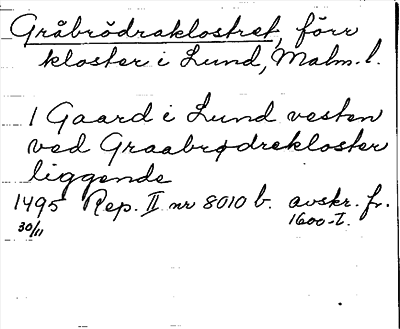 Gråbrödraklostret, förr
kloster i Lund, Malm. l.
1 Gaard i Lund vesten
ved Graabrødrekloster
liggende
1495 Rep. II nr 8010 b. avskr. fr.
30/11 1600-t.